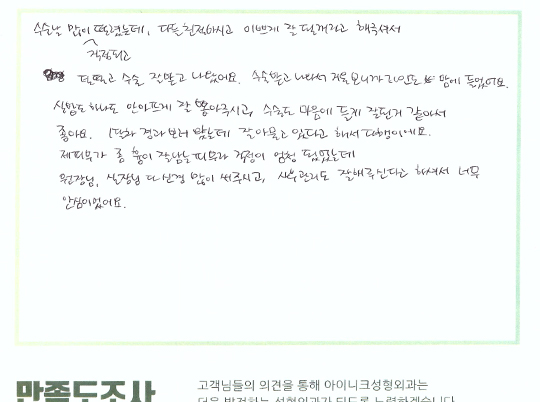 수술날 많이 떨렸는데, 다들 친절하시고 이쁘게 잘 될꺼라고 해주셔서
걱정되고
덜떨고 수술 잘받고 나왔어요. 수술받고 나와서 거울보니까 라인도 맘에 들었어요.
실밥도 하나도 안아프게 잘 뽑아주시고, 수술도 마음에 들게 잘된거 같아서
좋아요. 1달차 경과 보러 왔는데 잘 아물고 있다고 해서 다행이에요.
제피부가 좀 흉이 잘남는 피부라 걱정이 엄청 됐었는데
원장님, 실장님 다 신경 많이 써주시고, 사후관리도 잘해주신다고 하셔서 너무
안심이었어요.
만족도조사
고객님들의 의견을 통해 아이니크성형외과는
더욱 발전하는 성형외과가 되도록 노력하겠습니다.